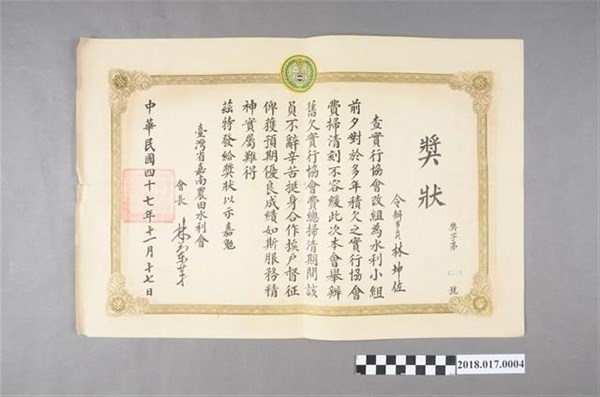 獎狀
獎字第 號
令辦事員林坤佐
查實行協會改組為水利小組
前夕對於多年積欠之實行協會
費掃清刻不容緩此次本會舉辦
舊欠實行協會費總掃清期間該
員不辭辛苦挺身合作挨戶督征
俾獲預期優良成績如斯服務精
神實屬難得
茲特發給獎狀以示嘉勉
臺灣省嘉南農田水利會
會長
中華民國四十七年十一月十七日
2018.017.0004